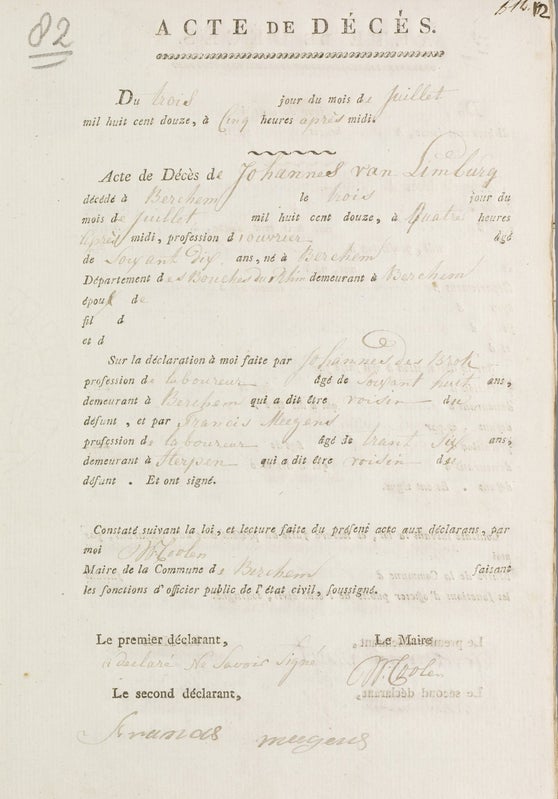 82
ACTE DE DÉCÉS.
Du trois jour du mois de Juillet
mil huit cent douze, à Cinq heures après midi.
Acte de Décès de Johannes van Limburg
décédé à Berchem le trois jour du
mois de Juillet mil huit cent douze, à Quatre heures
après midi, profession d'ouvrier âgé
de soixant Dix ans, né à Berchem
Département des Bouches du Rhin demeurant à Berchem
épou de
fil d
et d
Sur la déclaration à moi faite par Johannes des Brok
profession de laboureur âgé de soixant huit ans,
demeurant à Berchem qui a dit être voisin du
défunt, et par Francis Meegens
profession de laboureur âgé de trant six ans,
demeurant à Herpen qui a dit être voisin du
défunt. Et ont signé.
Constaté suivant la loi, et lecture faite du présent acte aux déclarans, par
moi W. Coolen
Maire de la Commune de Berchem faisant
les fonctions d'officier public de l'état civil, soussigné.
Le premier déclarant, Le Maire
a declaré Ne Savoir Signé W. Coolen
Le second déclarant,
Francis meegens